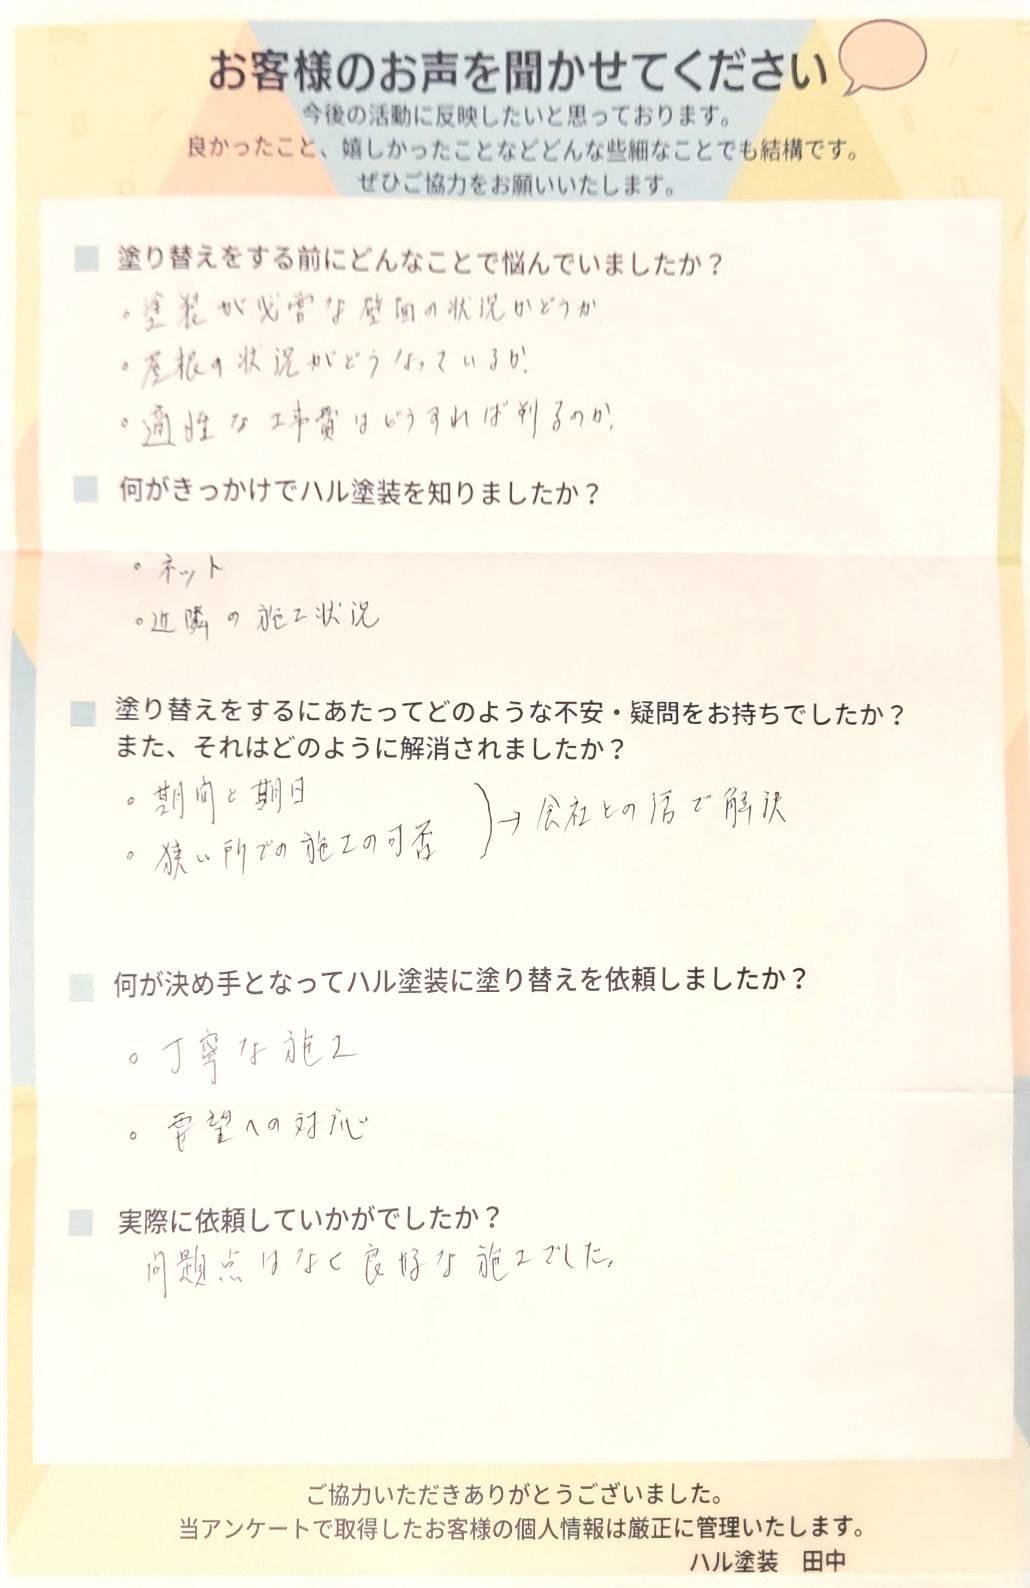 お客様のお声を聞かせてください
今後の活動に反映したいと思っております。
良かったこと、嬉しかったことなどどんな些細なことでも結構です。
ぜひご協力をお願いいたします。
塗り替えをする前にどんなことで悩んでいましたか？
・塗装が必要な壁面の状況かどうか
・屋根の状況がどうなっているか?
・適性な工事費はどうすれば判るのか?
何がきっかけでハル塗装を知りましたか？
・ネット
・近隣の施工状況
塗り替えをするにあたってどのような不安・疑問をお持ちでしたか？
また、それはどのように解消されましたか？
・期間と期日
・狭い所での施工の可否
→会社との話で解決
何が決め手となってハル塗装に塗り替えを依頼しましたか？
・丁寧な施工
・要望への対応
実際に依頼していかがでしたか？
問題点はなく良好な施工でした。
ご協力いただきありがとうございました。
当アンケートで取得したお客様の個人情報は厳正に管理いたします。
ハル塗装　田中